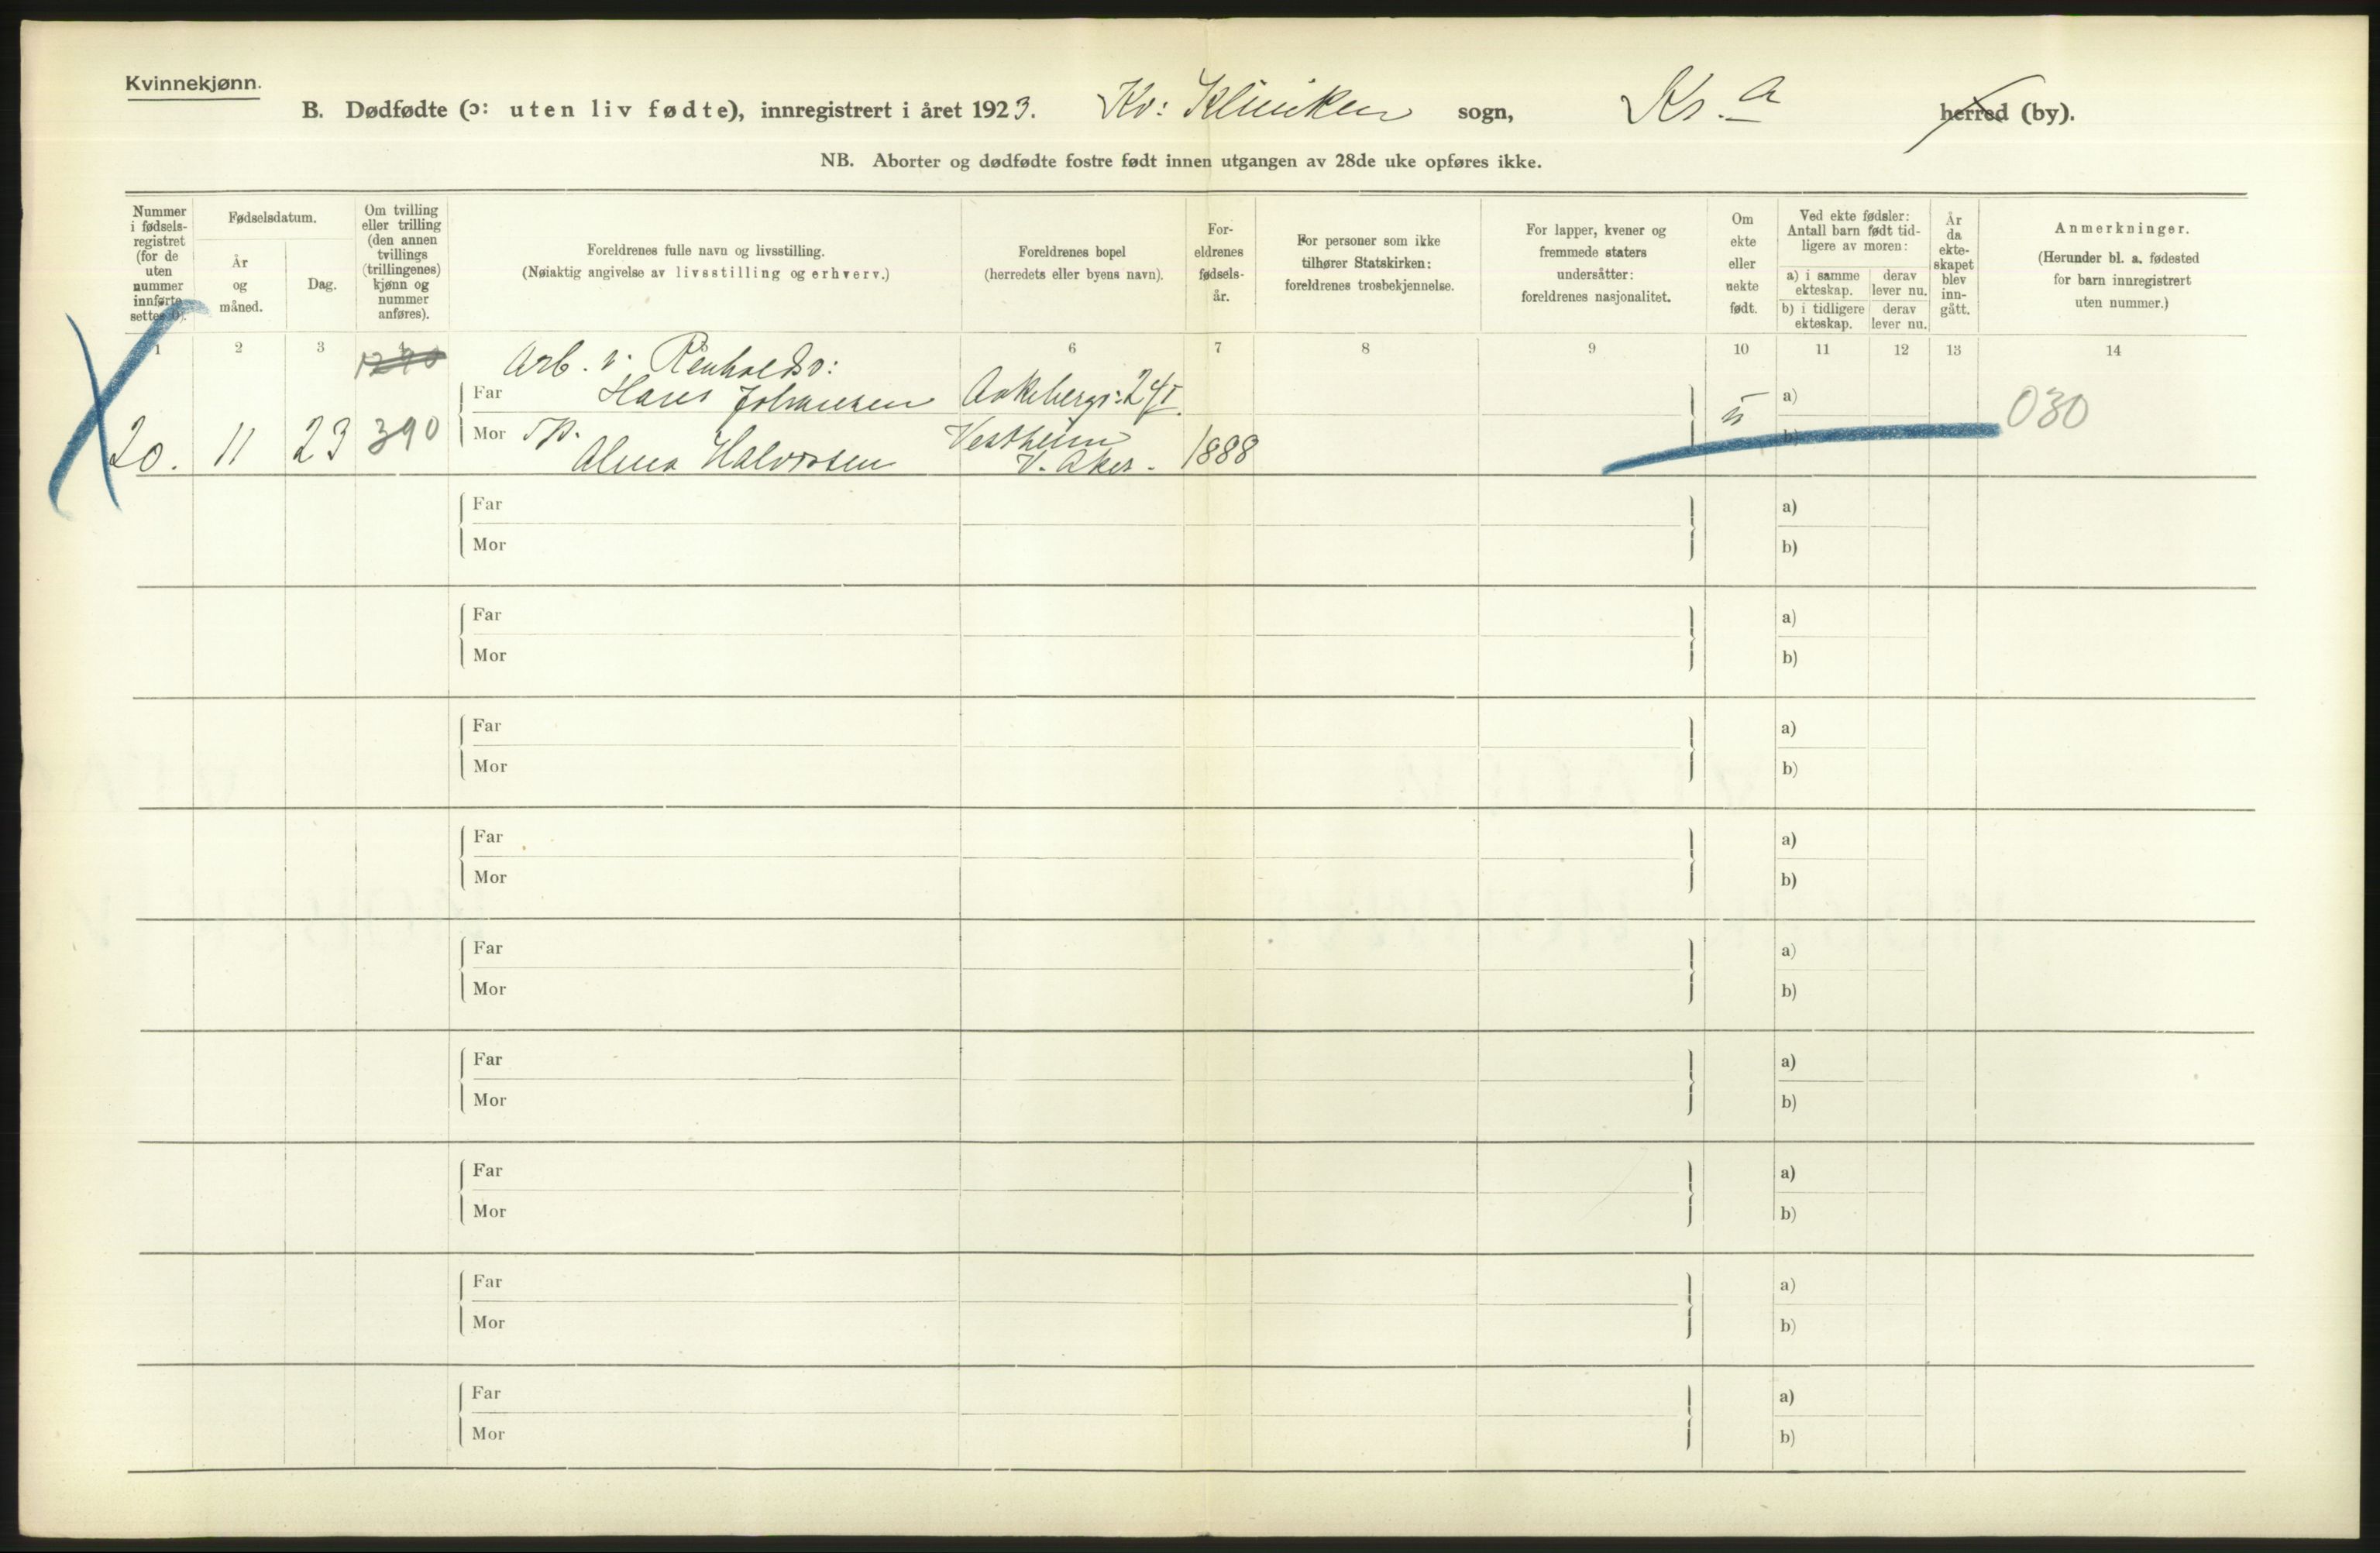 Kvinnekjønn.
B. Dødfødte (ɔ: uten liv fødte), innregistrert i året 1923. Kv: Kliniken sogn, Kr.a herred (by).
NB. Aborter og dødfødte fostre født innen utgangen av 28de uke opføres ikke.
Nummer i fødsels-registret (for de uten nummer innførte settes 0).
Fødselsdatum.
År og måned.
Dag.
Om tvilling eller trilling (den annen tvillings (trillingenes) kjønn og nummer anføres).
Foreldrenes fulle navn og livsstilling.
(Nøiaktig angivelse av livsstilling og erhverv.)
Foreldrenes bopel
(herredets eller byens navn).
For-eldrenes fødsels-år.
For personer som ikke tilhører Statskirken: foreldrenes trosbekjennelse.
For lapper, kvener og fremmede staters undersåtter: foreldrenes nasjonalitet.
Om ekte eller uekte født.
Ved ekte fødsler: Antall barn født tid-ligere av moren:
a) i samme ekteskap.
derav lever nu.
b) i tidligere ekteskap.
derav lever nu.
År da ekte-skapet blev inn-gått.
Anmerkninger.
(Herunder bl. a. fødested for barn innregistrert uten nummer.)
1 2 3 6 7 8 9 10 11 12 13 14
Arb. v. Renholdsv:
Far Hans Johansen Aakebergv: 24 I. a) 030
20. 11 23 390 Mor Tp. Alma Halvorsen Vestheim V. Aker. 1888 u b)
Far a)
Mor b)
Far a)
Mor b)
Far a)
Mor b)
Far a)
Mor b)
Far a)
Mor b)
Far a)
Mor b)
Far a)
Mor b)
Far a)
Mor b)
Far a)
Mor b)